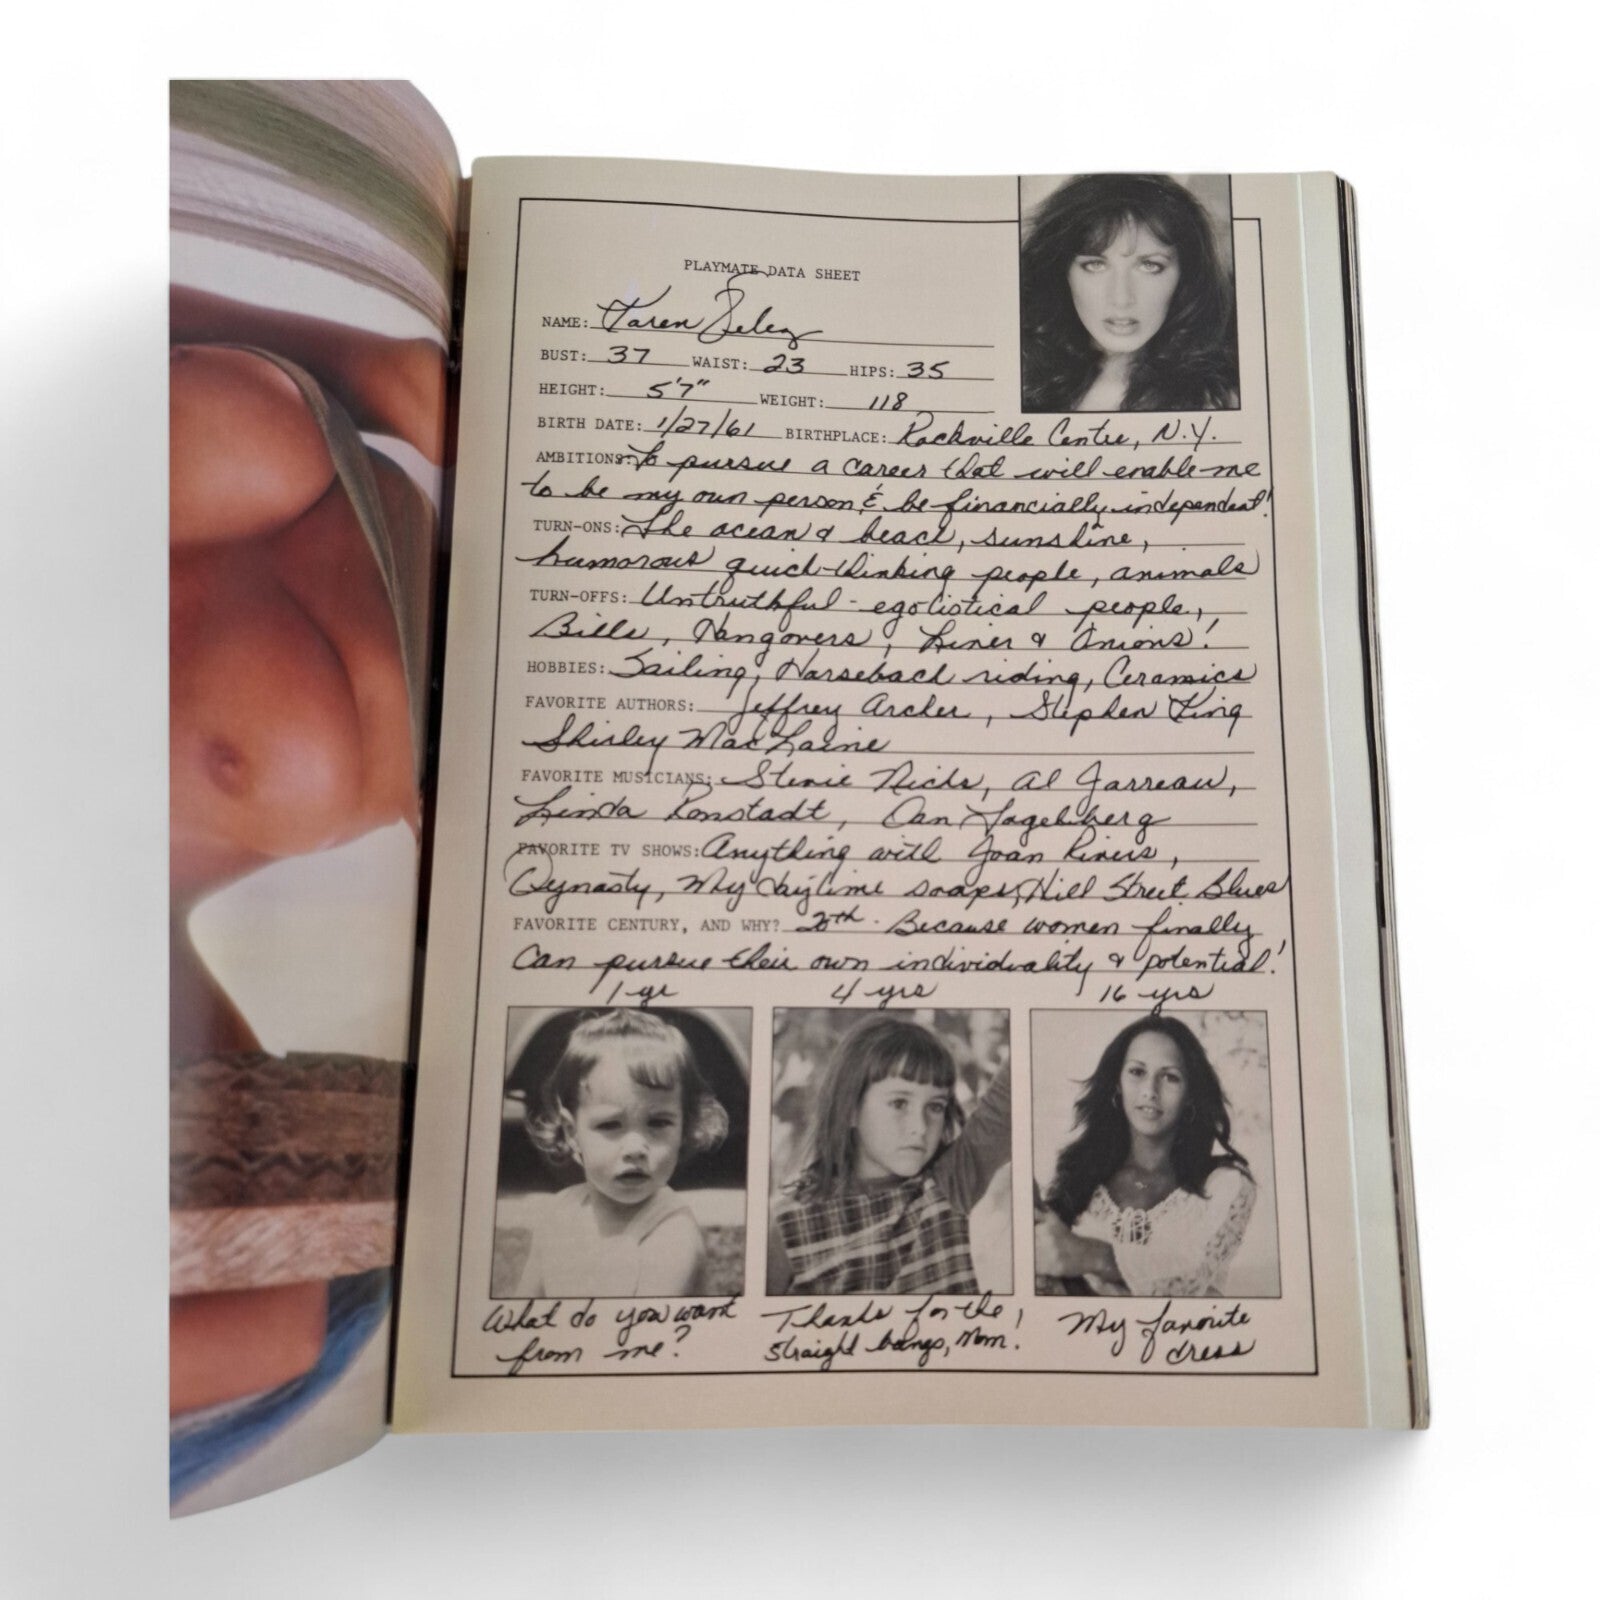 PLAYMATE DATA SHEET
NAME: Karen Velez
BUST: 37 WAIST: 23 HIPS: 35
HEIGHT: 5'7" WEIGHT: 118
BIRTH DATE: 1/27/61 BIRTHPLACE: Rockville Centre, N.Y.
AMBITIONS: To pursue a career that will enable me
to be my own person & be financially independent!
TURN-ONS: The ocean & beach, sunshine,
humorous quick-thinking people, animals
TURN-OFFS: Untruthful - egotistical people,
Bills, Hangovers, Liver & Onions!
HOBBIES: Sailing, Horseback riding, Ceramics
FAVORITE AUTHORS: Jeffrey Archer, Stephen King
Shirley MacLaine
FAVORITE MUSICIANS: Stevie Nicks, Al Jarreau,
Linda Ronstadt, Dan Fogelberg
FAVORITE TV SHOWS: Anything with Joan Rivers,
Dynasty, My daytime soaps, Hill Street Blues
FAVORITE CENTURY, AND WHY? 20th - Because women finally
can pursue their own individuality & potential!
1 yr 4 yrs 16 yrs
What do you want Thanks for the My favorite
from me? straight bangs, Mom! dress